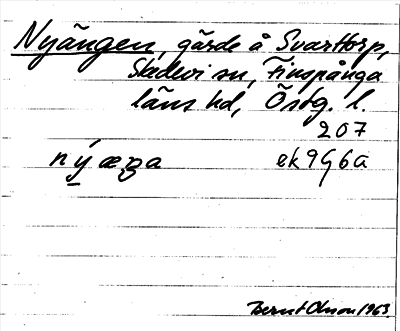 Nyängen, gärde å Svarttorp,
Skedevi sn, Finspånga
läns hd, Östg. l.
207
nýæŋa ek9G6a
Bernt Olsson 1963